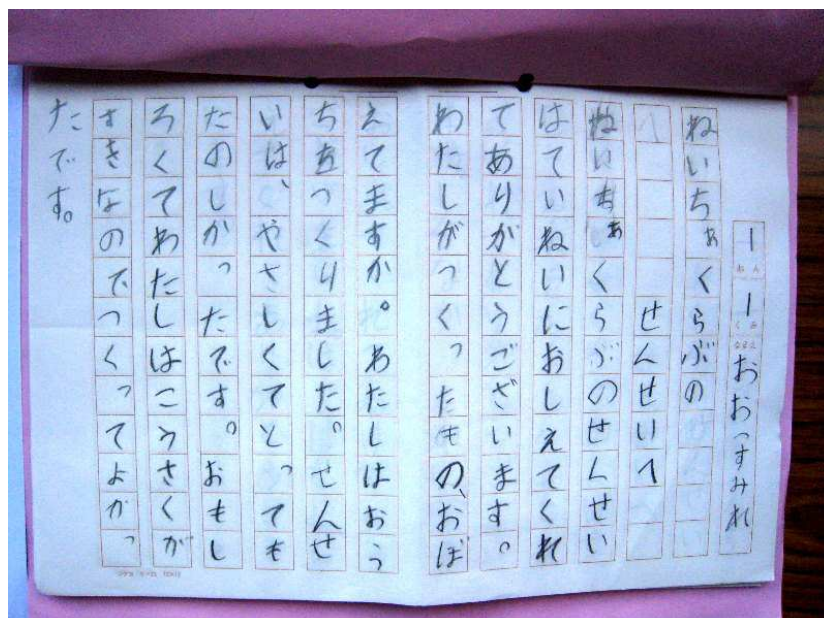 1ねん1くみなまえおおつすみれ
ねいちぁくらぶの
せんせいへ
ねいちぁくらぶのせんせい
はていねいにおしえてくれ
てありがとうございます。
わたしがつくったもの、おぼ
えてますか。わたしはおう
ちをつくりました。せんせ
いは、やさしくてとっても
たのしかったです。おもし
ろくてわたしはこうさくが
すきなのでつくってよかっ
たです。